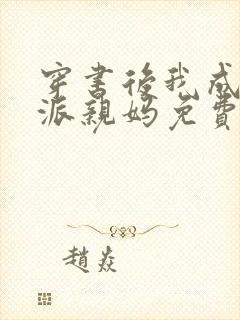 穿書後我成
派親媽免費
趙焱